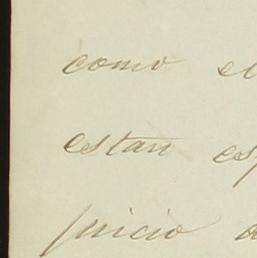 como el
estan es
juicio